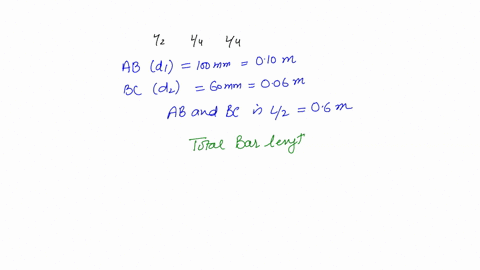 L/2 L/4 L/4
AB (d1) = 100mm = 0.10 m
BC (d2) = 60mm = 0.06 m
AB and BC is L/2 = 0.6 m
Total Bar lengt